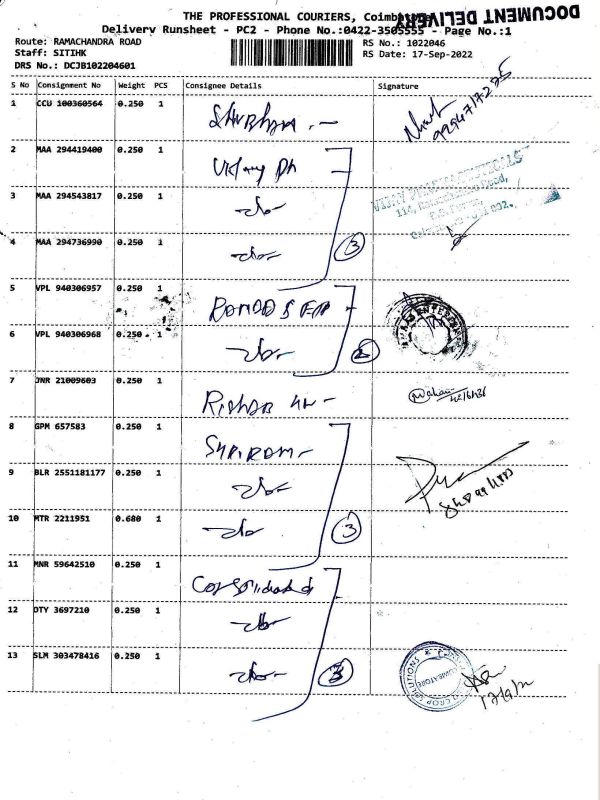 DOCUMENT DELIVERY
THE PROFESSIONAL COURIERS, Coimbatore
Delivery Runsheet - PC2 - Phone No.:0422-3505555 - Page No.:1
Route: RAMACHANDRA ROAD RS No.: 1022046
Staff: SITIHK RS Date: 17-Sep-2022
DRS No.: DCJB102204601
S No Consignment No Weight PCS Consignee Details Signature
1 CCU 100360564 0.250 1
2 MAA 294419400 0.250 1
3 MAA 294543817 0.250 1 -do-
4 MAA 294736990 0.250 1 -do- 3
5 VPL 940306957 0.250 1
6 VPL 940306968 0.250 1 -do- 2
7 JNR 21009603 0.250 1
8 GPM 657583 0.250 1 SHRIRAM
9 BLR 2551181177 0.250 1 -do-
10 MTR 2211951 0.680 1 -do- 3
11 MNR 59642510 0.250 1 Consolidated
12 OTY 3697210 0.250 1 -do-
13 SLM 303478416 0.250 1 -do- 3
CROP SOLUTIONS
COIMBATORE